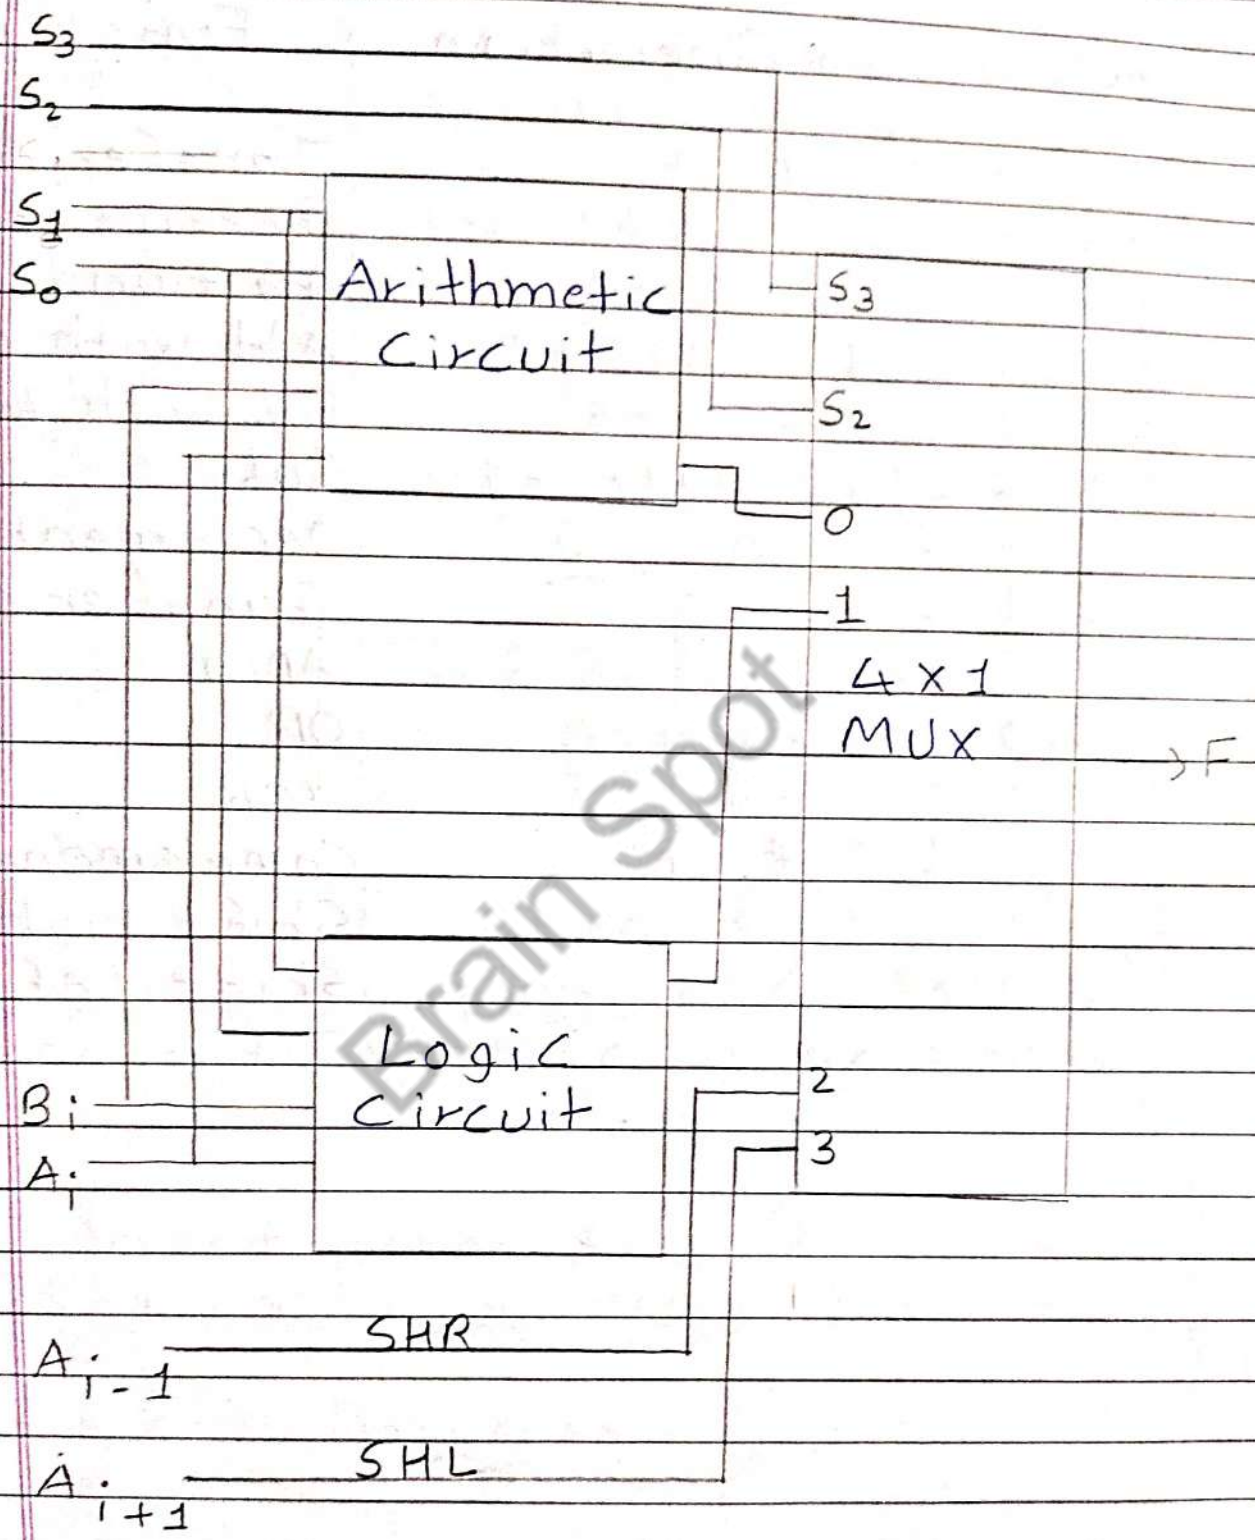 S3
S2
S1
S0
Arithmetic
Circuit
S3
S2
0
1
4 x 1
MUX
F
Brain Spot
Logic
Circuit
2
3
Bi
Ai
SHR
Ai-1
SHL
Ai+1